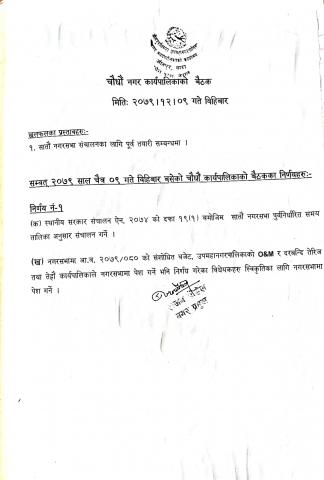 चौधौं नगर कार्यपालिकाको बैठक
मितिः २०७९।१२।०९ गते बिहिबार
छलफलका प्रस्तावहरुः-
१. सातौं नगरसभा संचालनका लागि पूर्व तयारी सम्बन्धमा ।
सम्वत् २०७९ साल चैत्र ०९ गते बिहिबार बसेको चौधौं कार्यपालिकाको बैठकका निर्णयहरुः-
निर्णय नं-१
(क) स्थानीय सरकार संचालन ऐन, २०७४ को दफा १९(१) बमोजिम सातौं नगरसभा पुर्वनिर्धारित समय
तालिका अनुसार संचालन गर्ने ।
(ख) नगरसभामा आ.व. २०७९/०८० को संशोधित बजेट, उपमहानगरपालिकाको O&M र दरबन्दि तेरिज
तथा तेह्रौं कार्यपालिकाले नगरसभामा पेश गर्ने भनि निर्णय गरेका विधेयकहरु स्विकृतिका लागि नगरसभामा
पेश गर्ने ।
नगर प्रमुख